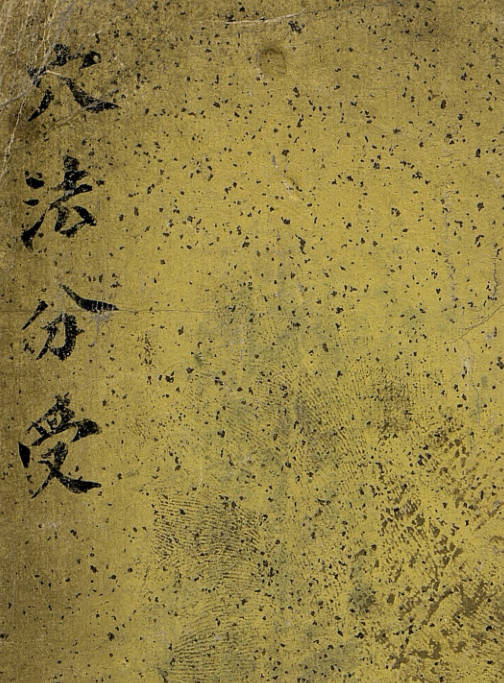 穴法分受